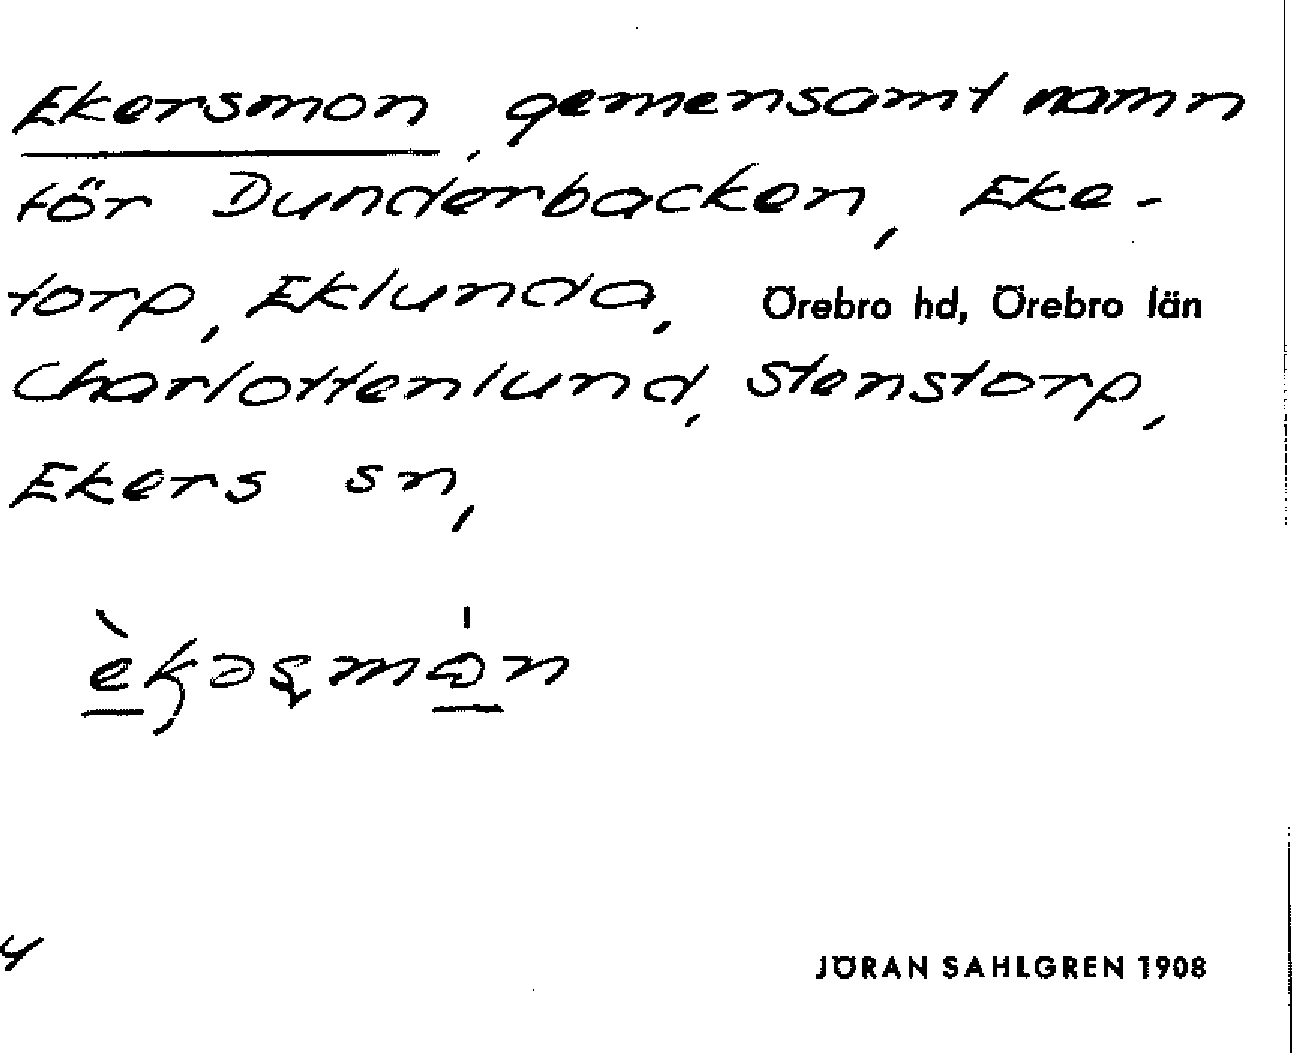 Ekersmon, gemensamt namn
för Dunderbacken, Eke-
torp, Eklunda, Örebro hd, Örebro län
Charlottenlund, Stenstorp,
Ekers sn,
JÖRAN SAHLGREN 1908